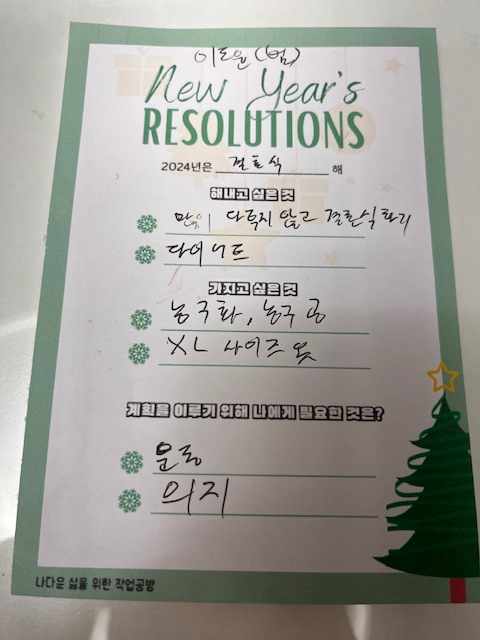 이도윤 (범)
New Year's
RESOLUTIONS
2024년은 결혼식 해
해내고 싶은 것
많이 다투지 않고 결혼식 하기
다이어트
가지고 싶은 것
농구화, 농구공
XL 사이즈 옷
계획을 이루기 위해 나에게 필요한 것은?
운동
의지
나다운 삶을 위한 작업공방